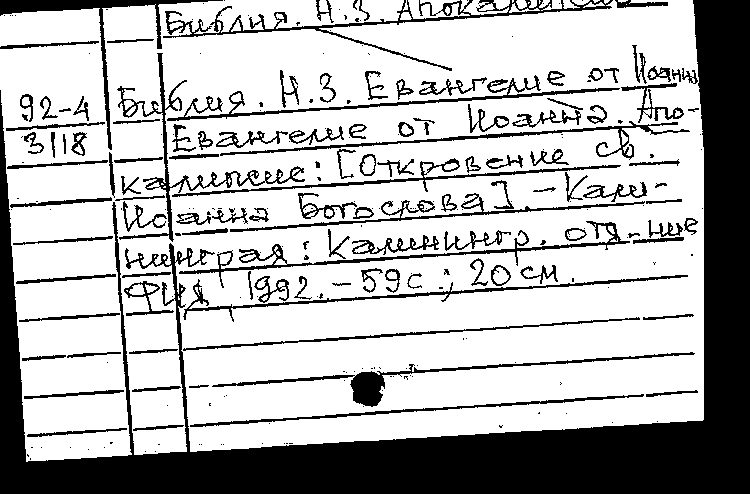 Библия. Н.З. Апокалипсис
92-4 Библия. Н.З. Евангелие от Иоанна
3118 Евангелие от Иоанна. Апо-
калипсис: [Откровение св.
Иоанна Богослова]. - Кали-
нинград: Калинингр. отд-ние
1992. - 59с.; 20 см.